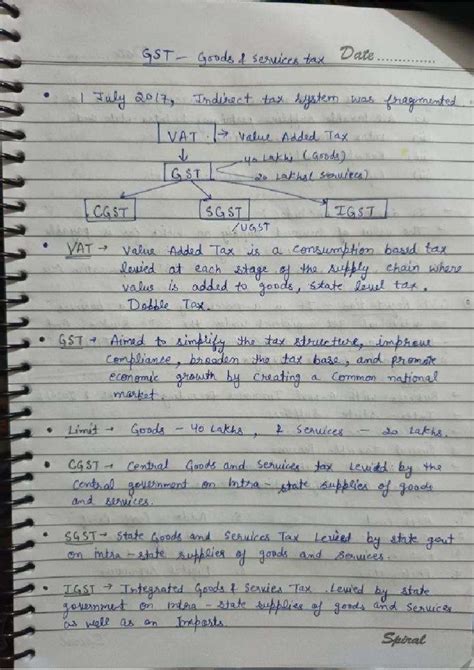 GST - Goods & Services tax Date..............
• 1 July 2017, Indirect tax system was fragmented
VAT → Value Added Tax
GST 40 Lakhs (Goods)
20 Lakhs (Services)
CGST SGST IGST
/UGST
• VAT → Value Added Tax is a consumption based tax
levied at each stage of the supply chain where
value is added to goods, state level tax.
Dobble Tax.
• GST → Aimed to simplify the tax structure, improve
compliance, broaden the tax base, and promote
economic growth by creating a common national
market.
• Limit → Goods - 40 Lakhs, & Services - 20 Lakhs.
• CGST → Central Goods and Services tax Levied by the
Central government on Intra - state supplies of goods
and services.
• SGST → State Goods and Services Tax Levied by state govt
on intra - state supplies of goods and services.
• IGST → Integrated Goods & Servies Tax. Levied by state
government on Intra - state supplies of goods and services
as well as on Imports.
Spiral